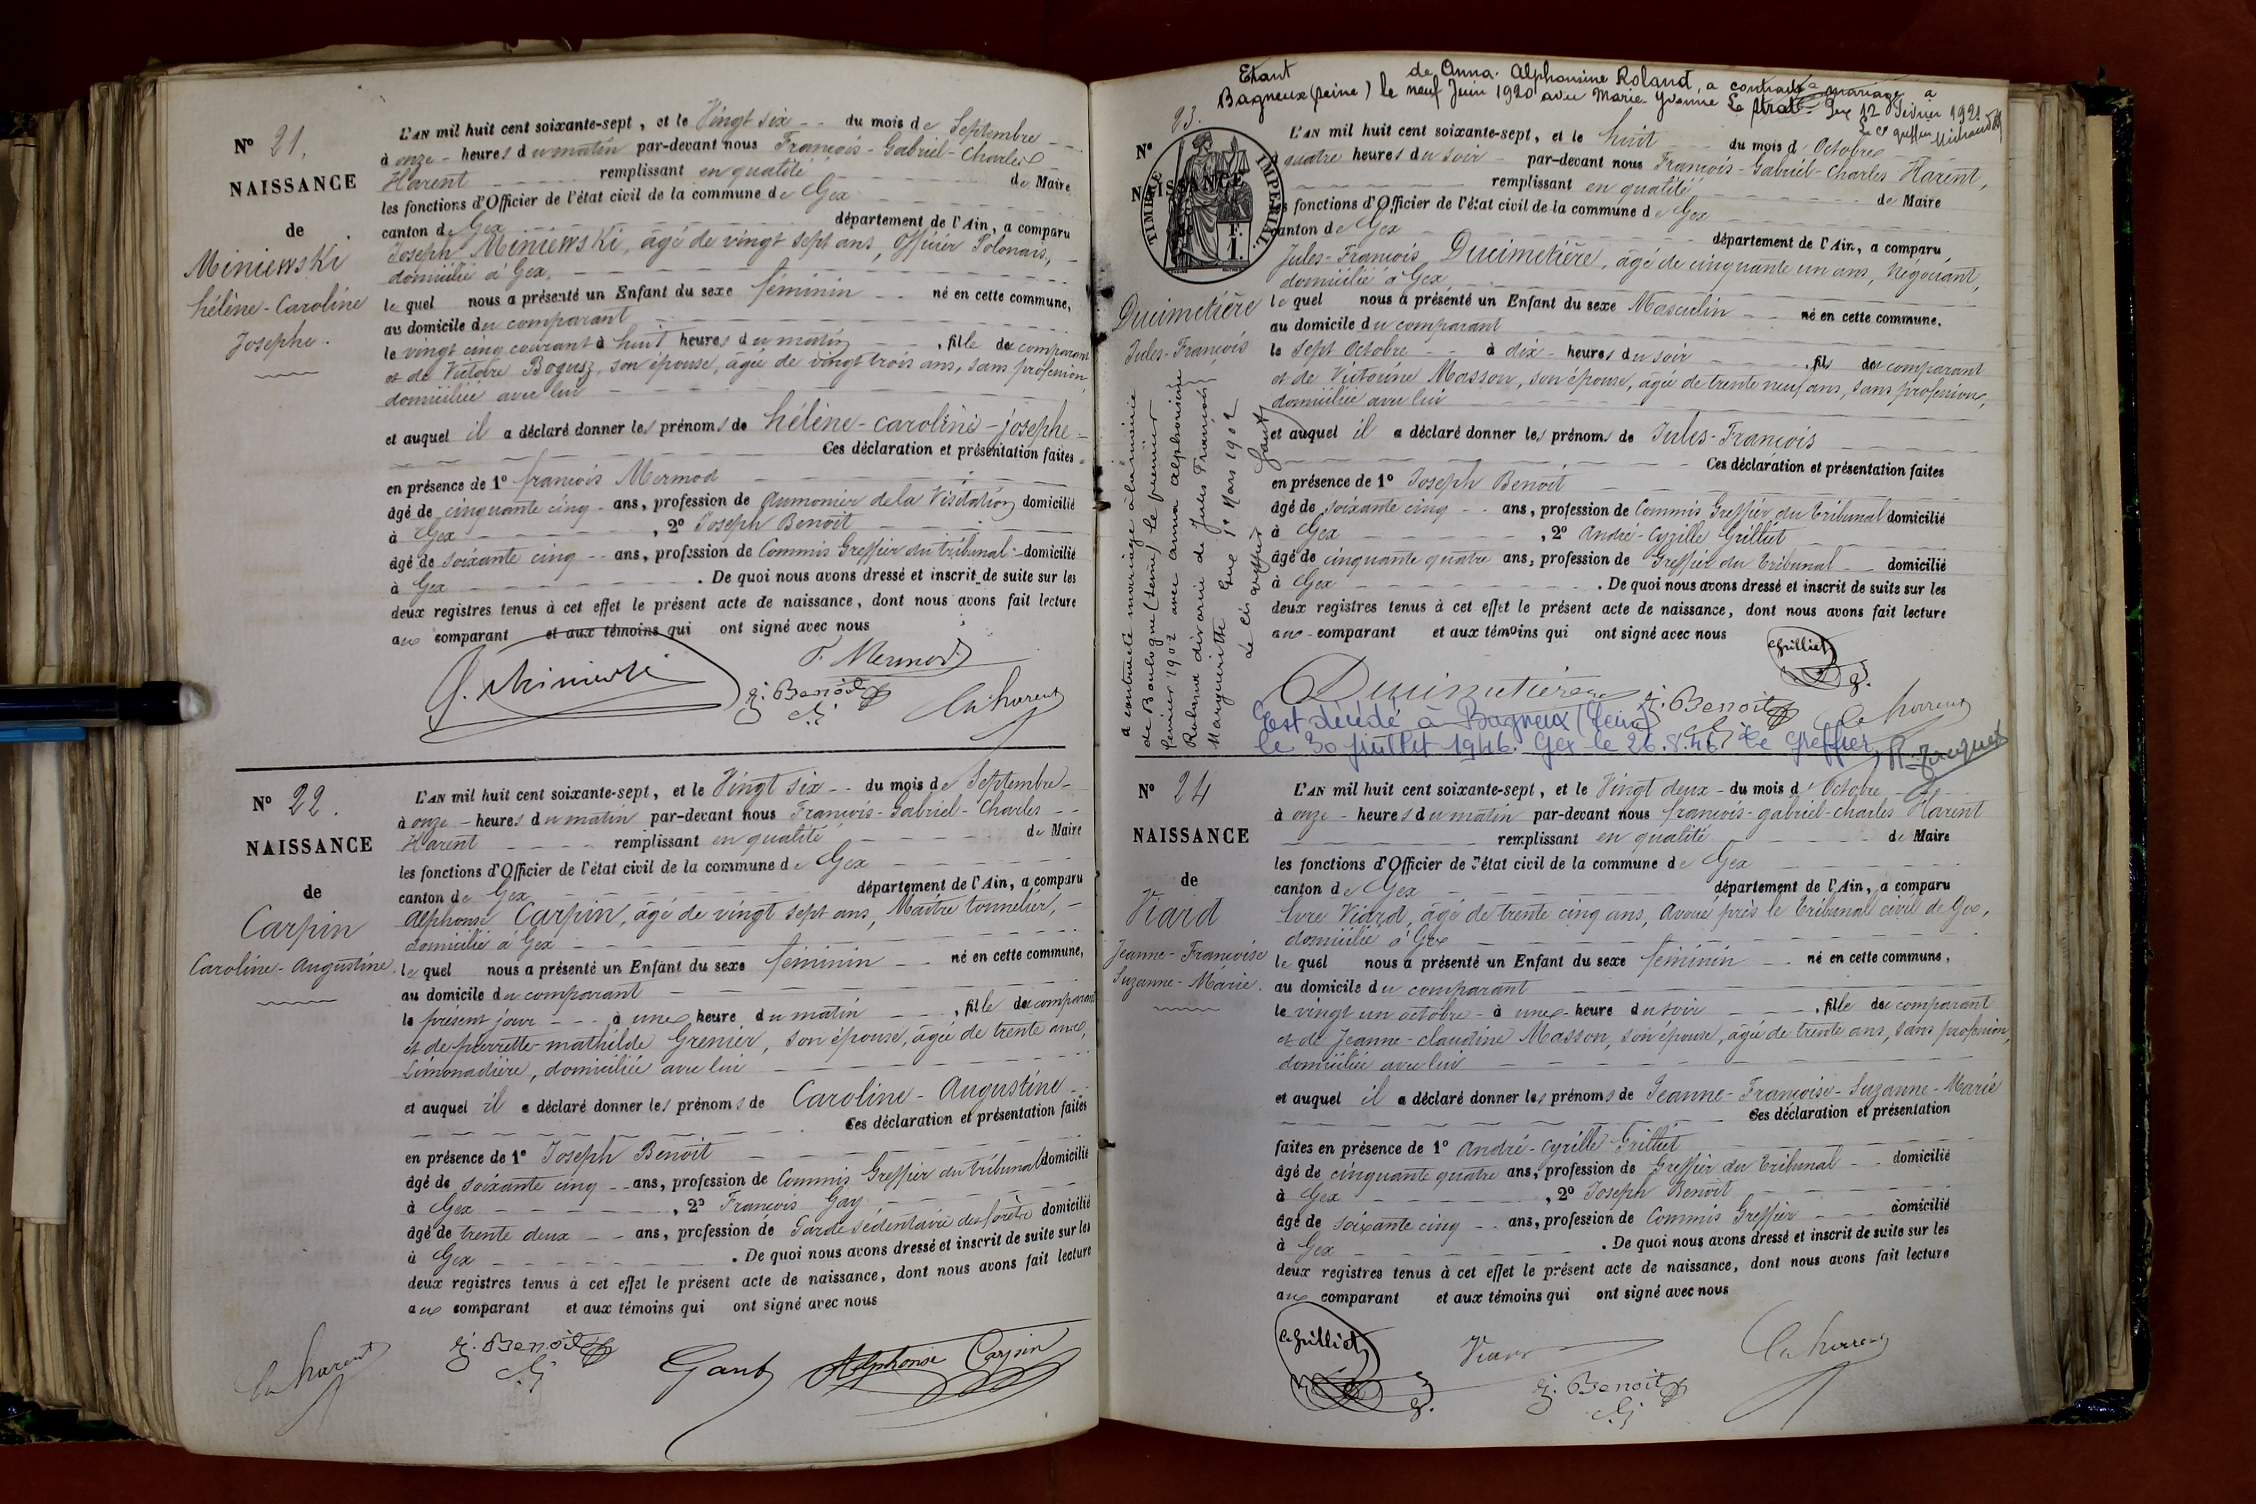 N° 21.
NAISSANCE
de
Miniewski
hélène-Caroline
Josephe.
L'AN mil huit cent soixante-sept, et le Vingt six du mois de Septembre
à onze heures du matin par-devant nous François-Gabriel-Charles
Harent remplissant en qualité de Maire
les fonctions d'Officier de l'état civil de la commune de Gex
canton de Gex département de l'Ain, a comparu
Joseph Miniewski, âgé de vingt sept ans, Officier Polonais,
domicilié à Gex,
lequel nous a présenté un Enfant du sexe féminin né en cette commune,
au domicile du comparant
le vingt cinq courant à huit heures du matin, fille du comparant
et de Victoire Bogusz, son épouse, âgée de vingt trois ans, sans profession,
domiciliée avec lui
et auquel il a déclaré donner les prénoms de hélène-caroline-josephe
Ces déclaration et présentation faites
en présence de 1° françois Mermod
âgé de cinquante cinq ans, profession de aumonier de la Visitation domicilié
à Gex, 2° Joseph Benoit
âgé de soixante cinq ans, profession de Commis Greffier du tribunal domicilié
à Gex. De quoi nous avons dressé et inscrit de suite sur les
deux registres tenus à cet effet le présent acte de naissance, dont nous avons fait lecture
aux comparant et aux témoins qui ont signé avec nous
F. Mermod
J. Benoit
Ch harent
N° 22.
NAISSANCE
de
Carpin
Caroline-Augustine.
L'AN mil huit cent soixante-sept, et le Vingt six du mois de Septembre
à onze heures du matin par-devant nous François-Gabriel-Charles
Harent remplissant en qualité de Maire
les fonctions d'Officier de l'état civil de la commune de Gex
canton de Gex département de l'Ain, a comparu
alphonse Carpin, âgé de vingt sept ans, Maître tonnelier,
domicilié à Gex
lequel nous a présenté un Enfant du sexe féminin né en cette commune,
au domicile du comparant
le présent jour à une heure du matin, fille du comparant
et de pierrette-mathilde Grenier, son épouse, âgée de trente ans,
Limonadière, domiciliée avec lui
et auquel il a déclaré donner les prénoms de Caroline-Augustine
Ces déclaration et présentation faites
en présence de 1° Joseph Benoit
âgé de soixante cinq ans, profession de Commis Greffier du tribunal domicilié
à Gex, 2° François Gay
âgé de trente deux ans, profession de Garde sédentaire des forêts domicilié
à Gex. De quoi nous avons dressé et inscrit de suite sur les
deux registres tenus à cet effet le présent acte de naissance, dont nous avons fait lecture
aux comparant et aux témoins qui ont signé avec nous
Ch harent
J. Benoit
Alphonse Carpin
Etant de Anna-Alphonsine Roland, a contracté mariage à
Bagneux (Seine) le neuf Juin 1920 avec Marie-Yvonne Gex 12 Février 1921
N° 23.
NAISSANCE
TIMBRE IMPÉRIAL
1 F.
Ducimetière
Jules-François
L'AN mil huit cent soixante-sept, et le huit du mois d'Octobre
à quatre heures du soir par-devant nous François-Gabriel-Charles Harent,
remplissant en qualité de Maire
les fonctions d'Officier de l'état civil de la commune de Gex
canton de Gex département de l'Ain, a comparu,
Jules-François Ducimetière, âgé de cinquante un ans, Négociant,
domicilié à Gex
lequel nous a présenté un Enfant du sexe Masculin né en cette commune.
au domicile du comparant
le sept Octobre à dix heures du soir, fils du comparant
et de Victorine Masson, son épouse, âgée de trente neuf ans, sans profession,
domiciliée avec lui
et auquel il a déclaré donner les prénoms de Jules-François
Ces déclaration et présentation faites
en présence de 1° Joseph Benoit
âgé de soixante cinq ans, profession de Commis Greffier du tribunal domicilié
à Gex, 2° André-Cyrille Grilliet
âgé de cinquante quatre ans, profession de Greffier du tribunal domicilié
à Gex. De quoi nous avons dressé et inscrit de suite sur les
deux registres tenus à cet effet le présent acte de naissance, dont nous avons fait lecture
aux comparant et aux témoins qui ont signé avec nous
a contracté mariage à la mairie
de Boulogne (Seine) le premier
février 1902 avec Anna Alphonsine
divorcée de Jules François
Marguerithe Gex 1er Mars 1902
Le Cis greffier
Grilliet
Ducimetière
J. Benoit
Ch harent
Est décédé à Bagneux (Seine)
le 30 juillet 1946. Gex le 26.8.46 Le Greffier,
N° 24
NAISSANCE
de
Viard
Jeanne-Françoise
Suzanne-Marie.
L'AN mil huit cent soixante-sept, et le Vingt deux du mois d'Octobre
à onze heures du matin par-devant nous françois-gabriel-charles Harent
remplissant en qualité de Maire
les fonctions d'Officier de l'état civil de la commune de Gex
canton de Gex département de l'Ain, a comparu
Viard, âgé de trente cinq ans, avoué près le tribunal civil de Gex,
domicilié à Gex
lequel nous a présenté un Enfant du sexe féminin né en cette commune,
au domicile du comparant
le vingt un octobre à une heure du soir, fille du comparant
et de Jeanne-claudine Masson, son épouse, âgée de trente ans, sans profession,
domiciliée avec lui
et auquel il a déclaré donner les prénoms de Jeanne-Françoise-Suzanne-Marie
Ces déclaration et présentation
faites en présence de 1° André-Cyrille Grilliet
âgé de cinquante quatre ans, profession de Greffier du tribunal domicilié
à Gex, 2° Joseph Benoit
âgé de soixante cinq ans, profession de Commis Greffier domicilié
à Gex. De quoi nous avons dressé et inscrit de suite sur les
deux registres tenus à cet effet le présent acte de naissance, dont nous avons fait lecture
aux comparant et aux témoins qui ont signé avec nous
Grilliet
Viard
J. Benoit
Ch harent